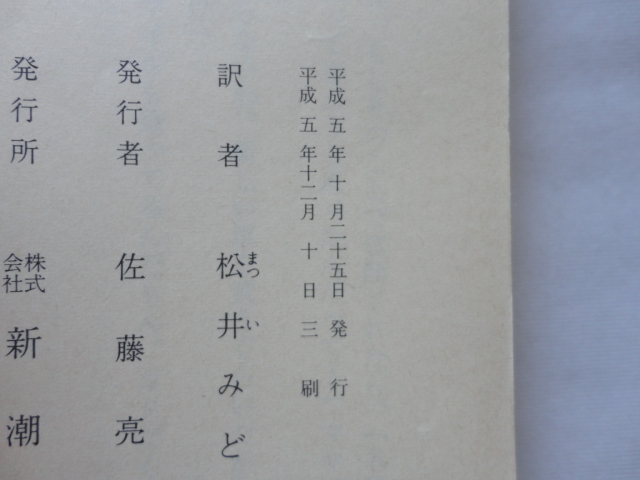 平成五年十月二十五日発行
平成五年十二月十日三刷
訳者 松井みど
まつい
発行者 佐藤亮
発行所 株式会社新潮